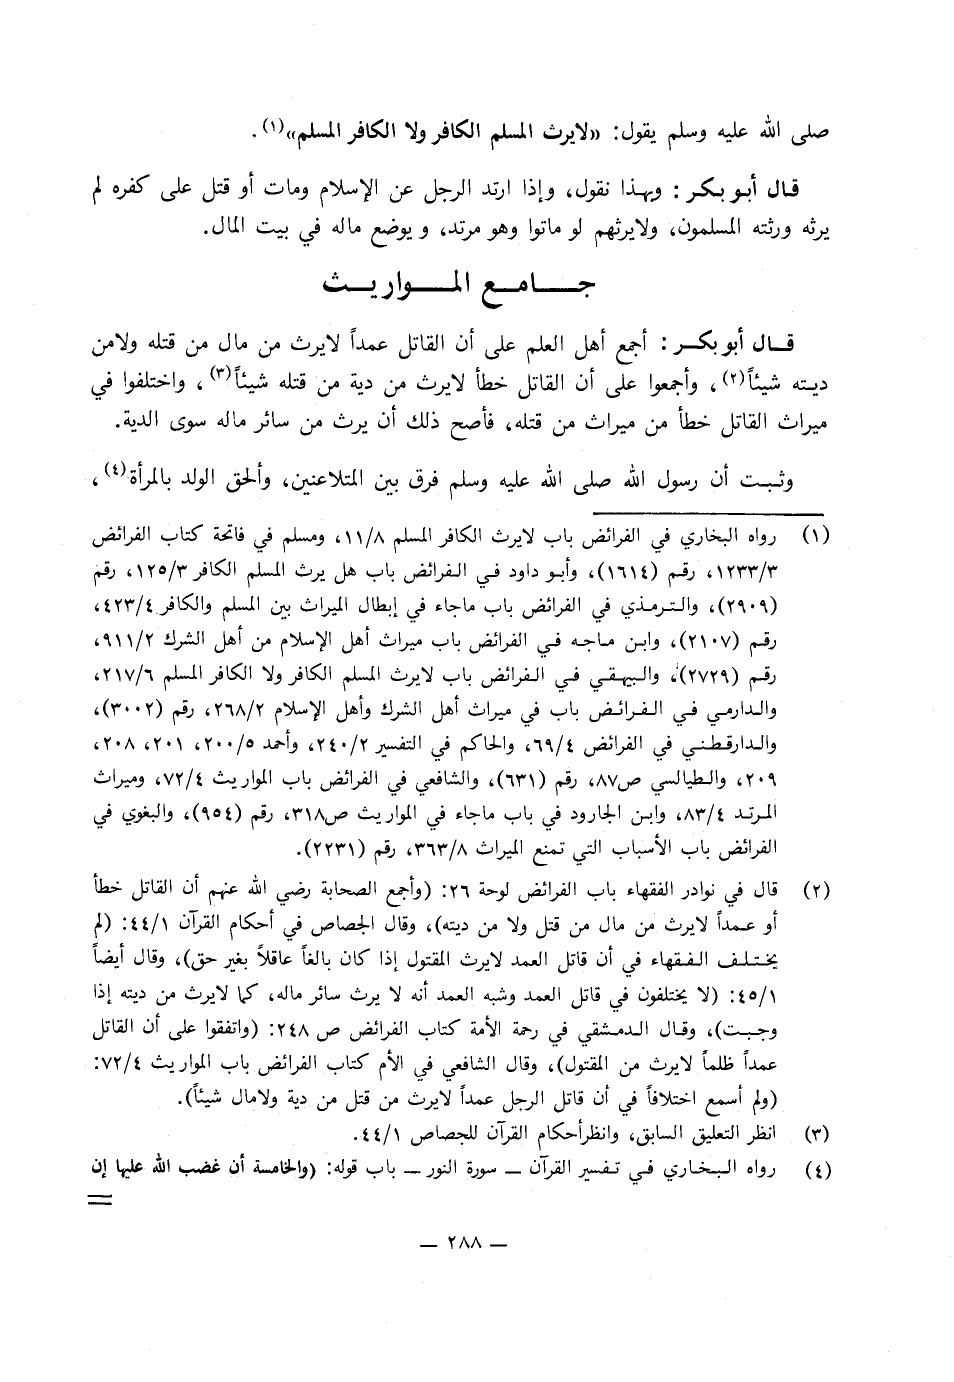 صلى الله عليه وسلم يقول: «لايرث المسلم الكافر ولا الكافر المسلم»(١).
قال أبو بكر: وبهذا نقول، وإذا ارتد الرجل عن الإسلام ومات أو قتل على كفره لم
يرثه ورثته المسلمون، ولايرثهم لو ماتوا وهو مرتد، ويوضع ماله في بيت المال.
جامع المواريث
قال أبو بكر: أجمع أهل العلم على أن القاتل عمداً لايرث من مال من قتله ولامن
ديته شيئاً(٢)، وأجمعوا على أن القاتل خطأ لايرث من دية من قتله شيئاً(٣)، واختلفوا في
ميراث القاتل خطأ من ميراث من قتله، فأصح ذلك أن يرث من سائر ماله سوى الدية.
وثبت أن رسول الله صلى الله عليه وسلم فرق بين المتلاعنين، وألحق الولد بالمرأة(٤)،
(١) رواه البخاري في الفرائض باب لايرث الكافر المسلم ١١/٨، ومسلم في فاتحة كتاب الفرائض
١٢٣٣/٣، رقم (١٦١٤)، وأبو داود في الفرائض باب هل يرث المسلم الكافر ١٢٥/٣، رقم
(٢٩٠٩)، والترمذي في الفرائض باب ماجاء في إبطال الميراث بين المسلم والكافر ٤٢٣/٤،
رقم (٢١٠٧)، وابن ماجه في الفرائض باب ميراث أهل الإسلام من أهل الشرك ٩١١/٢،
رقم (٢٧٢٩)، والبيهقي في الفرائض باب لايرث المسلم الكافر ولا الكافر المسلم ٢١٧/٦،
والدارمي في الفرائض باب في ميراث أهل الشرك وأهل الإسلام ٢٦٨/٢، رقم (٣٠٠٢)،
والدارقطني في الفرائض ٦٩/٤، والحاكم في التفسير ٢٤٠/٢، وأحمد ٢٠٠/٥، ٢٠١، ٢٠٨،
٢٠٩، والطيالسي ص٨٧، رقم (٦٣١)، والشافعي في الفرائض باب المواريث ٧٢/٤، وميراث
المرتد ٨٣/٤، وابن الجارود في باب ماجاء في المواريث ص٣١٨، رقم (٩٥٤)، والبغوي في
الفرائض باب الأسباب التي تمنع الميراث ٣٦٣/٨، رقم (٢٢٣١).
(٢) قال في نوادر الفقهاء باب الفرائض لوحة ٢٦: (وأجمع الصحابة رضي الله عنهم أن القاتل خطأ
أو عمداً لايرث من مال من قتل ولا من ديته)، وقال الجصاص في أحكام القرآن ٤٤/١: (لم
يختلف الفقهاء في أن قاتل العمد لايرث المقتول إذا كان بالغاً عاقلاً بغير حق)، وقال أيضاً
٤٥/١: (لا يختلفون في قاتل العمد وشبه العمد أنه لا يرث سائر ماله، كما لايرث من ديته إذا
وجبت)، وقال الدمشقي في رحمة الأمة كتاب الفرائض ص ٢٤٨: (واتفقوا على أن القاتل
عمداً ظلماً لايرث من المقتول)، وقال الشافعي في الأم كتاب الفرائض باب المواريث ٧٢/٤:
(ولم أسمع اختلافاً في أن قاتل الرجل عمداً لايرث من قتل من دية ولامال شيئاً).
(٣) انظر التعليق السابق، وانظرأحكام القرآن للجصاص ٤٤/١.
(٤) رواه البخاري في تفسير القرآن ــ سورة النور ــ باب قوله: (والخامسة أن غضب الله عليها إن
=
— ٢٨٨ —